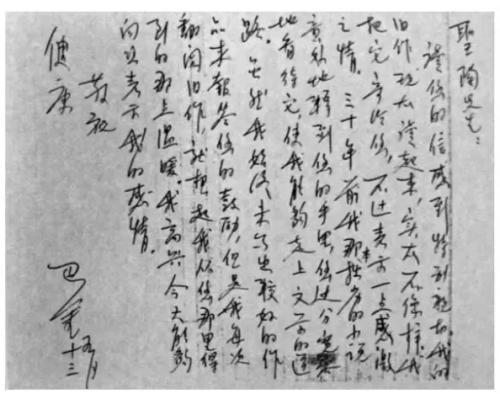 聖陶先生：
读您的信感到特别亲切。我的
旧作现在读起来，实在不像样，我
把它寄给您，不过表示一点感激
之情。三十年前我那本拙劣的小说
意外地转到您的手里，您过分宽
地看待它，使我能够走上文学的道
路。虽然我始终未写出较好的作
品来报答您的鼓励，但是我每次
翻阅旧作，就想起我从您那里得
到的那点温暖。我高兴今天能够
向您表示我的感情。
敬祝
健康
巴金
五月
十三